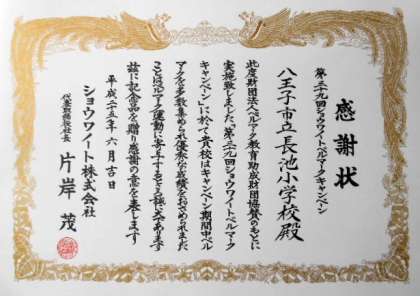 感謝状
第二十九回ショウワノートベルマークキャンペーン
八王子市立長池小学校殿
此度財団法人ベルマーク教育助成財団協賛のもとに
実施致しました、「第二十九回ショウワノートベルマーク
キャンペーン」に於て貴校はキャンペーン期間中ベル
マークを多数集められ優秀な成績をおさめられまた
ことはベルマーク運動に寄与するもので誠に大であります
茲に記念品を贈り感謝の意を表します
平成二十五年六月吉日
代表取締役社長
ショウワノート株式会社
片岸茂